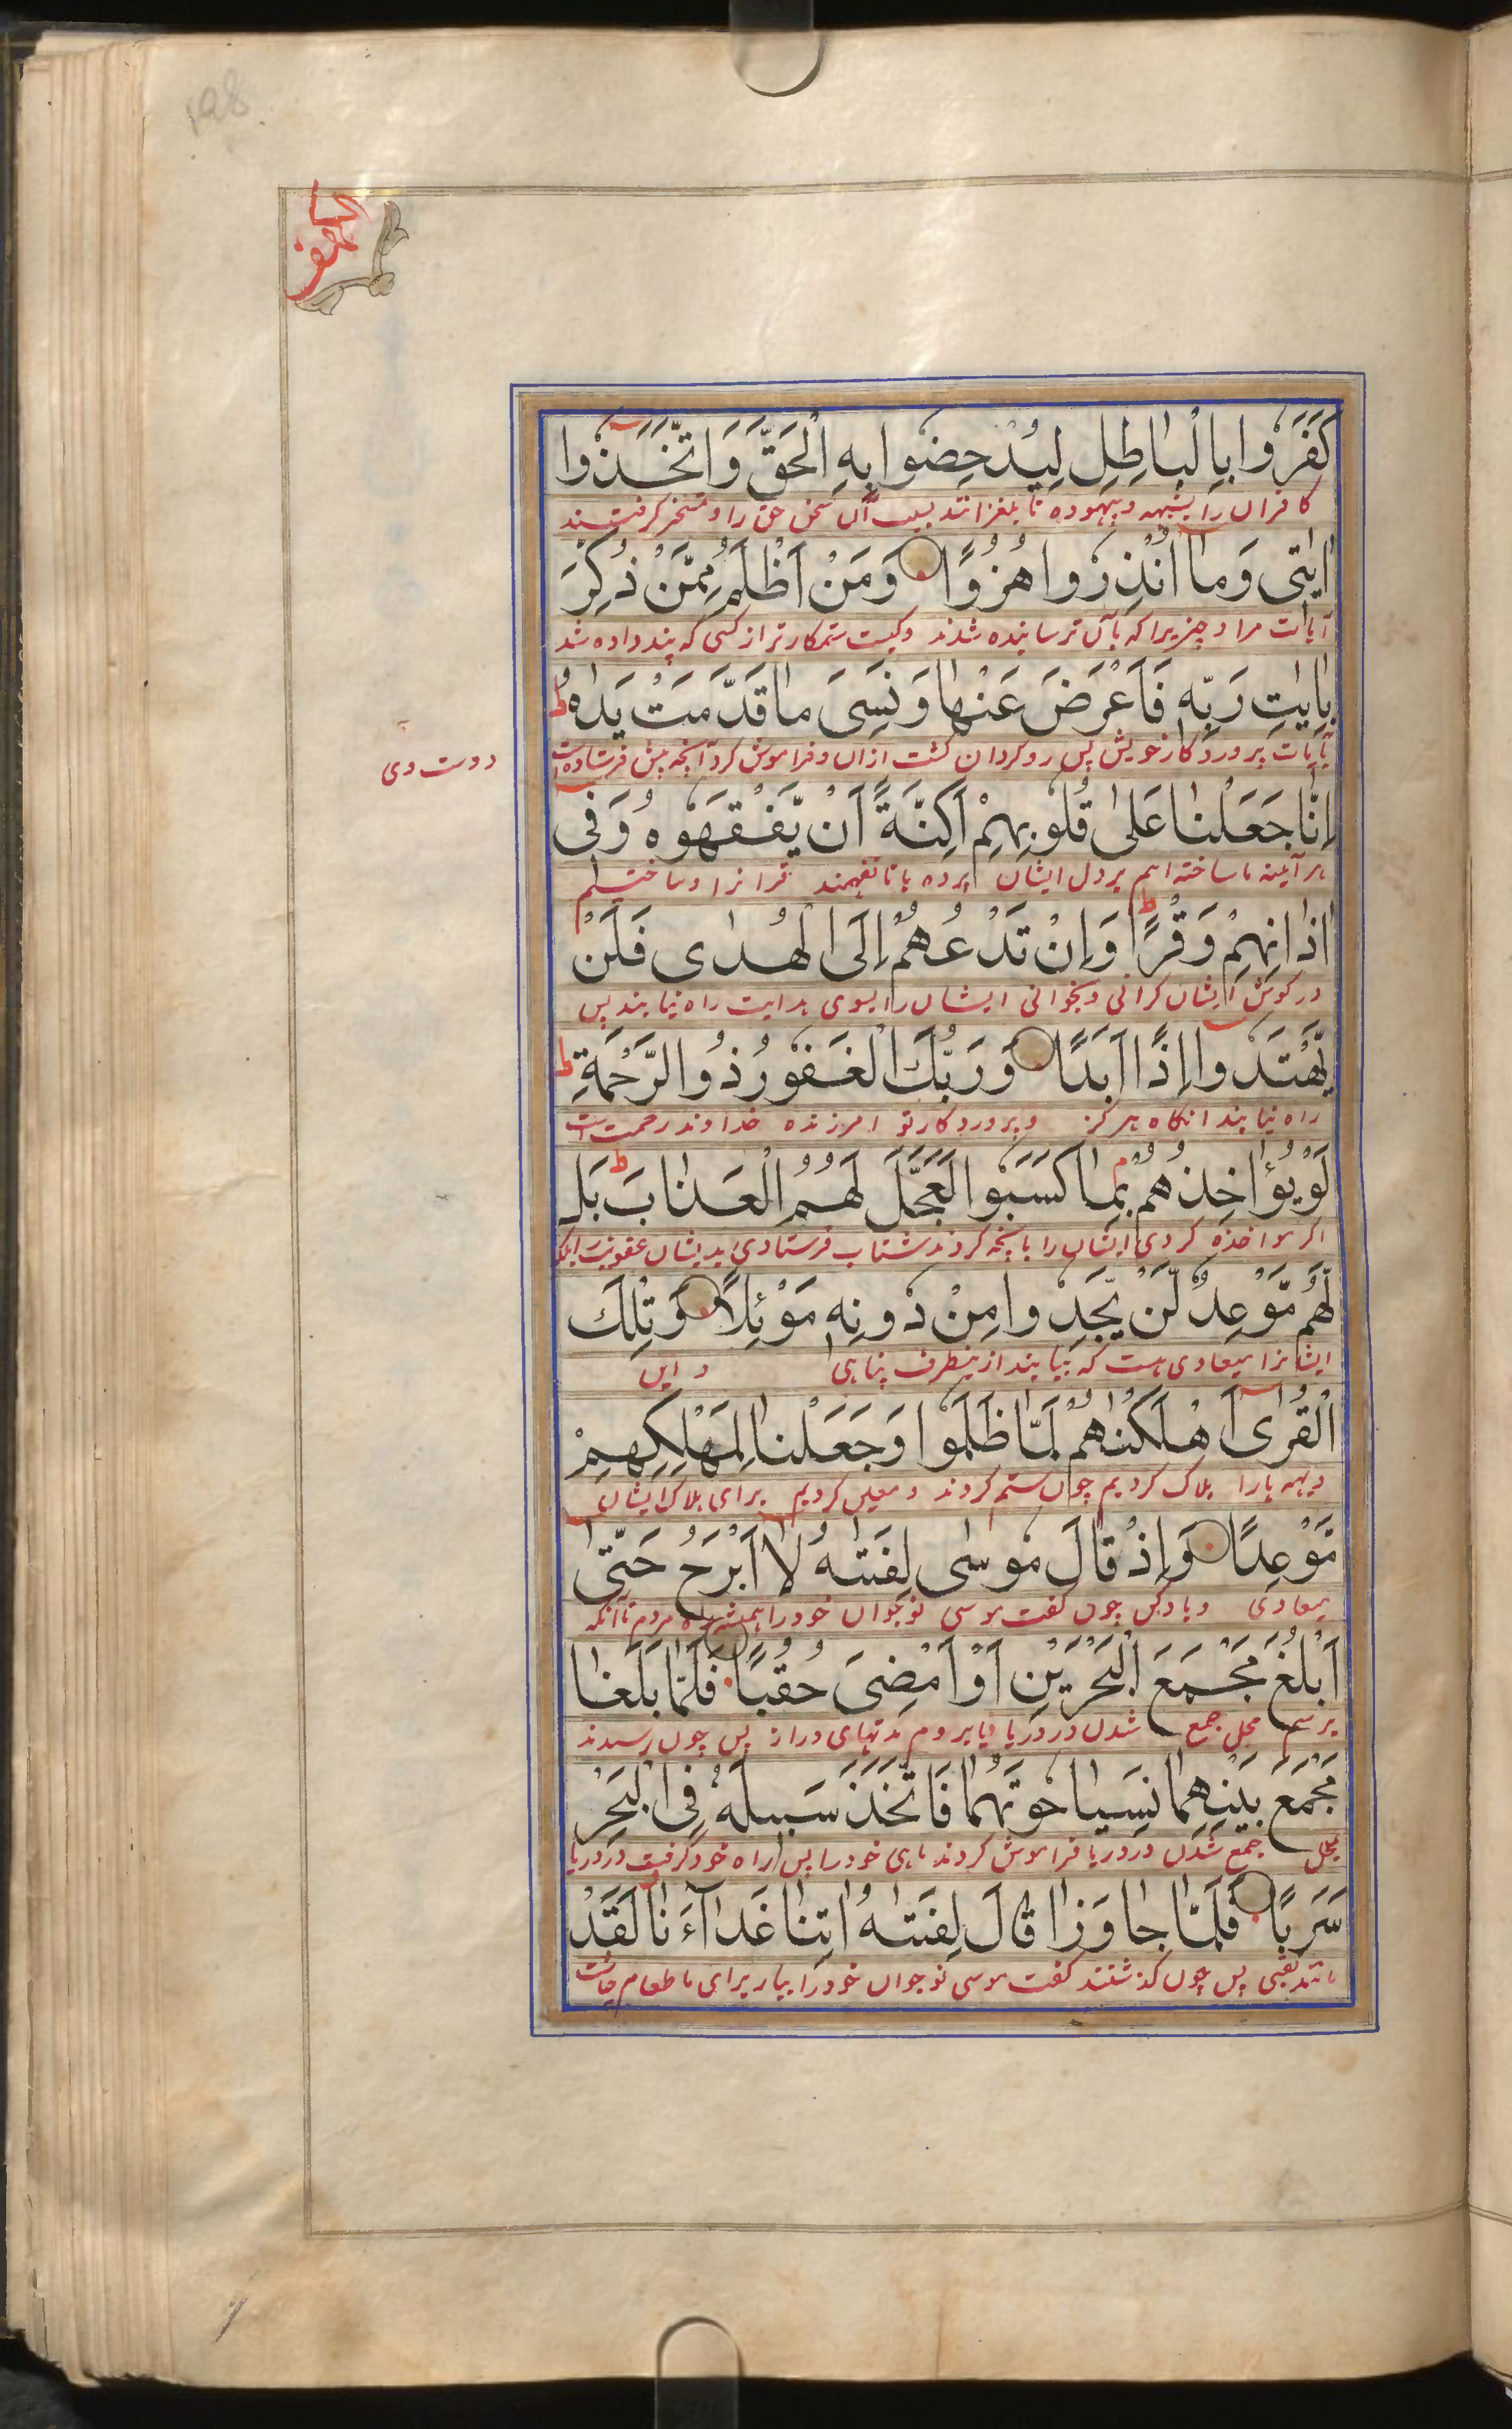 الكهف
كَفَرُوا بِالْبَاطِلِ لِيُدْحِضُوا بِهِ الْحَقَّ وَاتَّخَذُوا
کافران را بشبهه و بیهوده تا بلغزانند بسبب آن سخن حق را و تمسخر گرفتند
اٰيٰتِى وَمَا اُنْذِرُوا هُزُوًا وَمَنْ اَظْلَمُ مِمَّنْ ذُكِّرَ
آیات مرا و چیزیرا که بآن ترسانیده شدند و کیست ستمکارتر از کسی که پند داده شد
بِاٰيٰتِ رَبِّهٖ فَاَعْرَضَ عَنْهَا وَنَسِىَ مَا قَدَّمَتْ يَدٰهُ ط
بآیات پروردگار خویش پس روگردان گشت ازان و فراموش کرد آنچه پیش فرستاده است
دو دست وی
اِنَّا جَعَلْنَا عَلٰى قُلُوبِهِمْ اَكِنَّةً اَنْ يَّفْقَهُوهُ وَفِى
هر آئینه ما ساخته ایم بر دل ایشان پرده ها تا نفهمند قرانرا و ساختیم
اٰذَانِهِمْ وَقْرًا ط وَاِنْ تَدْعُهُمْ اِلَى الْهُدٰى فَلَنْ
در گوش ایشان گرانی و بخوانی ایشان را بسوی هدایت راه نیابند پس
يَّهْتَدُوا اِذًا اَبَدًا وَرَبُّكَ الْغَفُورُ ذُو الرَّحْمَةِ ط
راه نیابند انگاه هرگز و پروردگار تو امرزنده خداوند رحمت است
لَوْ يُؤَاخِذُهُمْ بِمَا كَسَبُوا لَعَجَّلَ لَهُمُ الْعَذَابَ ط بَلْ
اگر مواخذه کردی ایشان را بانچه کردند شتاب فرستادی بدیشان عقوبت بلکه
لَّهُمْ مَّوْعِدٌ لَّنْ يَّجِدُوا مِنْ دُونِهٖ مَوْئِلًا وَتِلْكَ
ایشانرا میعادی هست که نیابند ازینطرف پناهی و این
الْقُرٰى اَهْلَكْنٰهُمْ لَمَّا ظَلَمُوا وَجَعَلْنَا لِمَهْلِكِهِمْ
دیهه ها را هلاک کردیم چون ستم کردند و معین کردیم برای هلاک ایشان
مَّوْعِدًا وَاِذْ قَالَ مُوسٰى لِفَتٰىهُ لَا اَبْرَحُ حَتّٰى
میعادی و یاد کن چون گفت موسی نوجوان خود را همیشه راه مروم تا آنکه
اَبْلُغَ مَجْمَعَ الْبَحْرَيْنِ اَوْ اَمْضِىَ حُقُبًا فَلَمَّا بَلَغَا
برسم محل جمع شدن دو دریا یا بروم مدتهای دراز پس چون رسیدند
مَجْمَعَ بَيْنِهِمَا نَسِيَا حُوتَهُمَا فَاتَّخَذَ سَبِيلَهُ فِى الْبَحْرِ
محل جمع شدن دو دریا فراموش کردند ماهی خود را پس راه خود گرفت در دریا
سَرَبًا فَلَمَّا جَاوَزَا قَالَ لِفَتٰىهُ اٰتِنَا غَدَاءَنَا لَقَدْ
مانند نقبی پس چون گذشتند گفت موسی نوجوان خود را بیار برای ما طعام چاشت